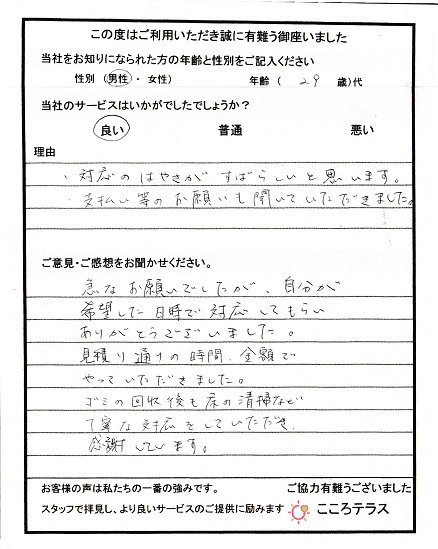 この度はご利用いただき誠に有難う御座いました
当社をお知りになられた方の年齢と性別をご記入ください
性別(男性・女性) 年齢( 29 歳)代
当社のサービスはいかがでしたでしょうか?
良い 普通 悪い
理由
・対応のはやさがすばらしいと思います。
・支払い等のお願いも聞いていただきました。
ご意見・ご感想をお聞かせください。
急なお願いでしたが、自分が
希望した日時で対応してもらい
ありがとうございました。
見積り通りの時間、金額で
やっていただきました。
ゴミの回収後も床の清掃など
丁寧な対応をしていただき、
感謝しています。
お客様の声は私たちの一番の強みです。 ご協力有難うございました
スタッフで拝見し、より良いサービスのご提供に励みます こころテラス